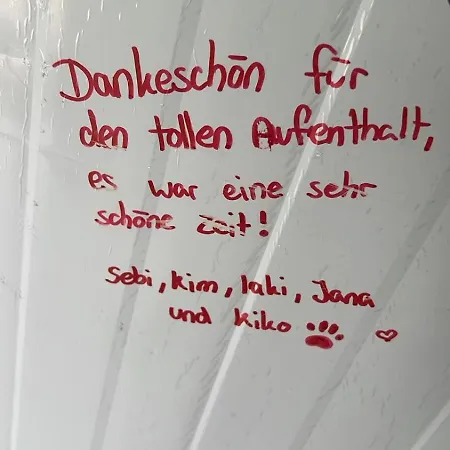 Dankeschön für
den tollen Aufenthalt,
es war eine sehr
schöne zeit!
Sebi, Kim, laki, Jana
und Kiko